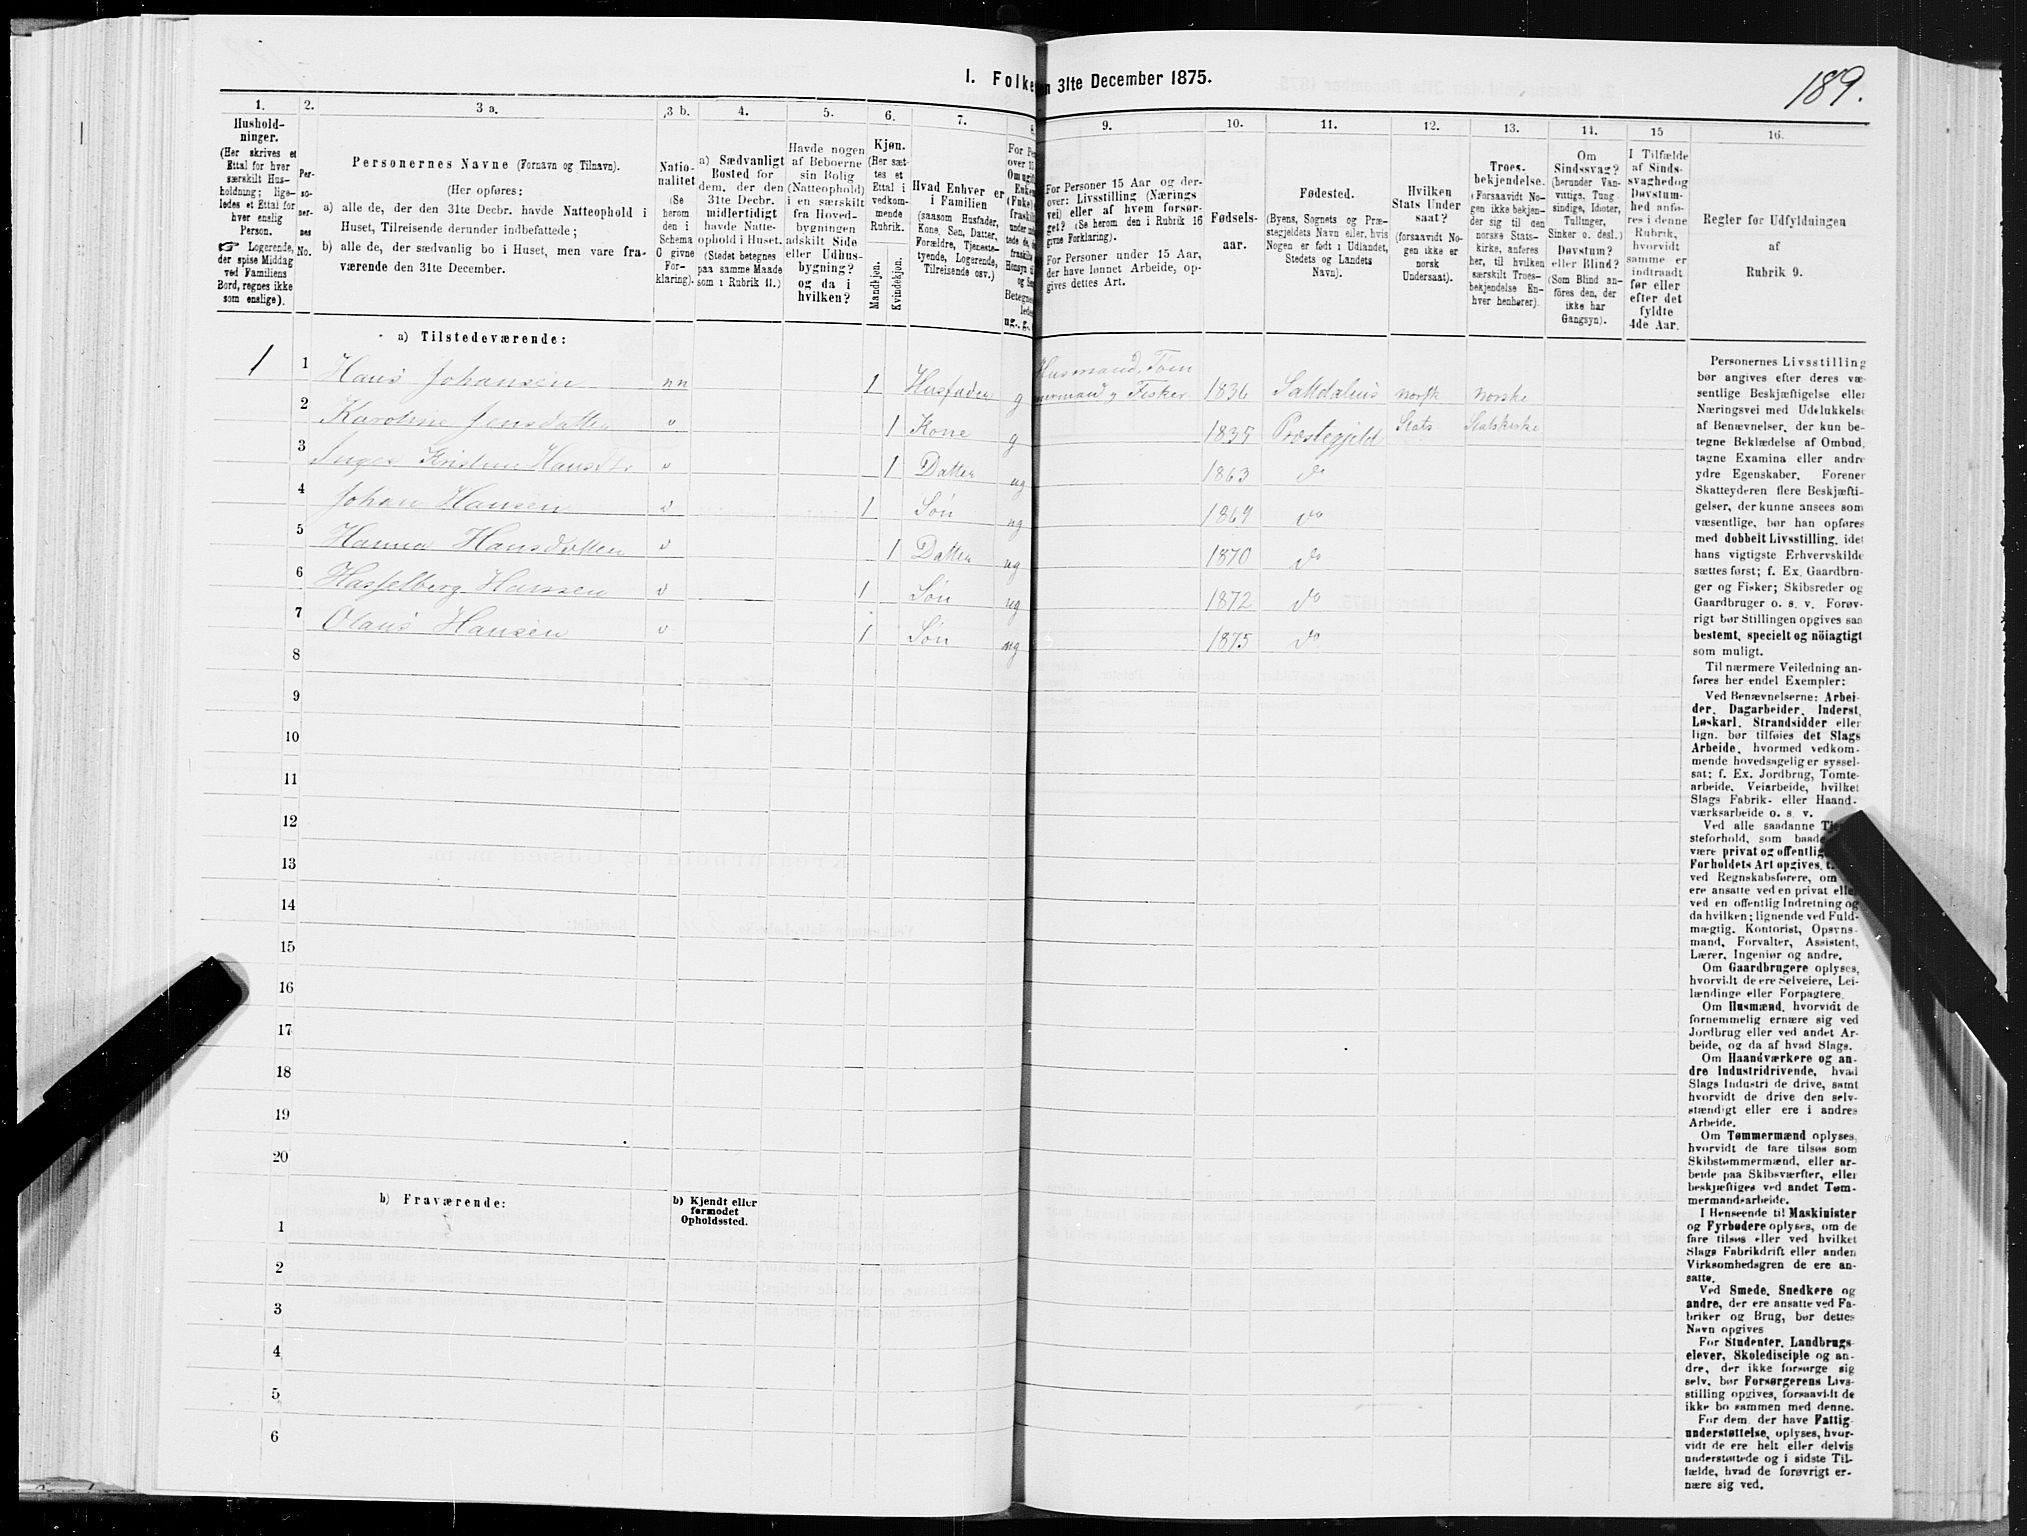 189.
I. Folke en 31te December 1875.
1. 2. 3 a. 3 b. 4. 5. 6. 7. 8. 9. 10. 11. 12. 13. 14. 15 16.
Hushold-
ninger.
(Her skrives et
Ettal for hver
særskilt Hus-
holdning; lige-
ledes et Ettal for
hver enslig
Person.
☞ Logerende,
der spise Middag
ved Familiens
Bord, regnes ikke
som enslige).
Per-
so-
ner-
nes
No.
Personernes Navne (Fornavn og Tilnavn).
(Her opføres:
a) alle de, der den 31te Decbr. havde Natteophold i
Huset, Tilreisende derunder indbefattede;
b) alle de, der sædvanlig bo i Huset, men vare fra-
værende den 31te December.
Natio-
nalitet
(Se
herom
den i
Schema
G givne
For-
klaring).
a) Sædvanligt
Bosted for
dem, der den
31te Decbr.
midlertidigt
havde Natte-
ophold i Huset.
(Stedet betegnes
paa samme Maade
som i Rubrik 11.)
Havde nogen
af Beboerne
sin Bolig
(Natteophold)
i en særskilt
fra Hoved-
bygningen
adskilt Side
eller Udhus-
bygning?
og da i
hvilken?
Kjøn.
(Her sæt-
tes et
Ettal i
vedkom-
mende
Rubrik.
Mandkjøn.
Kvindekjøn.
Hvad Enhver er
i Familien
(saasom Husfader,
Kone, Søn, Datter,
Forældre, Tjeneste-
tyende, Logerende,
Tilreisende osv.)
For Personer 15 Aar og der-
over: Livsstilling (Nærings
vei) eller af hvem forsør-
get? (Se herom den i Rubrik 16
givne Forklaring).
For Personer under 15 Aar,
der have lønnet Arbeide, op-
gives dettes Art.
Fødsels-
aar.
Fødested.
(Byens, Sognets og Præ-
stegjeldets Navn eller, hvis
Nogen er født i Udlandet,
Stedets og Landets
Navn).
Hvilken
Stats Under
saat?
(forsaavidt No-
gen ikke er
norsk
Undersaat).
Troes-
bekjendelse.
(Forsaavidt No-
gen ikke bekjen-
der sig til den
norske Stats-
kirke, anføres
her, til hvilken
særskilt Troes-
bekjendelse En-
hver henhører).
Om
Sindssvag?
(herunder Van-
vittige, Tung-
sindige, Idioter,
Tullinger,
Sinker o. desl.)
Døvstum?
eller Blind?
(Som Blind an-
føres den, der
ikke har
Gangsyn).
I Tilfælde
af Sinds-
svaghed og
Døvstum-
hed anfø-
res i denne
Rubrik,
hvorvidt
samme er
indtraadt
før eller
efter det
fyldte
4de Aar.
Regler for Udfyldningen
af
Rubrik 9.
a) Tilstedeværende:
1 1 Hans Johansen nn 1 Husfader g Husmand, Tømmermand og Fisker 1836 Saltdalens norsk norske
2 Karoline Jensdatter " 1 Kone g 1835 Præstegjeld Stats Statskirke
3 Inger Kristine Hansdtr " 1 Datter ug 1863 do
4 Johan Hansen " 1 Søn ug 1869 do
5 Hanna Hansdatter " 1 Datter ug 1870 do
6 Hasselberg Hansen " 1 Søn ug 1872 do
7 Olaus Hansen " 1 Søn ug 1875 do
8
9
10
11
12
13
14
15
16
17
18
19
20
b) Fraværende:
b) Kjendt eller
formodet
Opholdssted.
1
2
3
4
5
6
Personernes Livsstilling
bør angives efter deres væ-
sentlige Beskjæftigelse eller
Næringsvei med Udelukkelse
af Benævnelser, der kun be-
tegne Beklædelse af Ombud,
tagne Examina eller andre
ydre Egenskaber. Forener
Skatteyderen flere Beskjæfti-
gelser, der kunne ansees som
væsentlige, bør han opføres
med dobbelt Livsstilling, idet
hans vigtigste Erhvervskilde
sættes først; f. Ex. Gaardbru-
ger og Fisker; Skibsreder og
Gaardbruger o. s. v. Forøv-
rigt bør Stillingen opgives saa
bestemt, specielt og nöiagtigt
som muligt.
Til nærmere Veiledning an-
føres her endel Exempler:
Ved Benævnelserne: Arbei-
der, Dagarbeider, Inderst,
Løskarl, Strandsidder eller
lign. bør tilføies det Slags
Arbeide, hvormed vedkom-
mende hovedsagelig er syssel-
sat; f. Ex. Jordbrug, Tomte-
arbeide, Veiarbeide, hvilket
Slags Fabrik- eller Haand-
værksarbeide o. s. v.
Ved alle saadanne
steforhold, som
være privat og offentlig
Forholdets Art opgives,
ved Regnskabsførere, om
ere ansatte ved en privat
ved en offentlig Indretning og
da hvilken; lignende ved Fuld-
mægtig, Kontorist, Opsyns-
mand, Forvalter, Assistent,
Lærer, Ingeniør og andre.
Om Gaardbrugere oplyses,
hvorvidt de ere Selveiere, Lei-
lændinge eller Forpagtere.
Om Husmænd, hvorvidt de
fornemmelig ernære sig ved
Jordbrug eller ved andet Ar-
beide, og da af hvad Slags.
Om Haandværkere og an-
dre Industridrivende, hvad
Slags Industri de drive, samt
hvorvidt de drive den selv-
stændigt eller ere i andres
Arbeide.
Om Tømmermænd oplyses,
hvorvidt de fare tilsøs som
Skibstømmermænd, eller ar-
beide paa Skibsværfter, eller
beskjæftiges ved andet Tøm-
mermandsarbeide.
I Henseende til Maskinister
og Fyrbødere oplyses, om de
fare tilsøs eller ved hvilket
Slags Fabrikdrift eller anden
Virksomhedsgren de ere an-
satte.
Ved Smede, Snedkere og
andre, der ere ansatte ved Fa-
briker og Brug, bør dettes
Navn opgives
For Studenter, Landbrugs-
elever, Skoledisciple og an-
dre, der ikke forsørge sig
selv, bør Forsørgerens Livs-
stilling opgives, forsaavidt de
ikke bo sammen med denne.
For dem, der have Fattig-
understøttelse, oplyses, hvor-
vidt de ere helt eller delvis
understøttede og i sidste Til-
fælde, hvad de forøvrigt er-
nære sig ved.